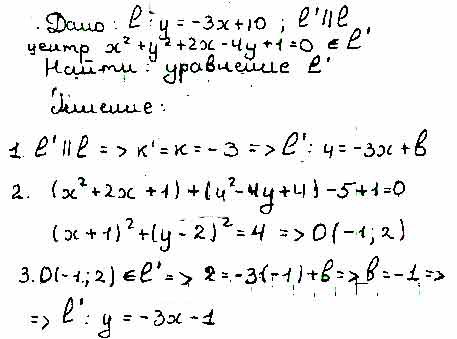 Дано: l: y = -3x+10; l' || l
центр x²+y²+2x-4y+1=0 ∈ l'
Найти: уравнение l'
Решение:
1. l' || l => k'=k=-3 => l': y=-3x+b
2. (x²+2x+1)+(y²-4y+4)-5+1=0
(x+1)²+(y-2)²=4 => O(-1;2)
3. O(-1;2) ∈ l' => 2=-3·(-1)+b => b=-1 =>
=> l': y=-3x-1